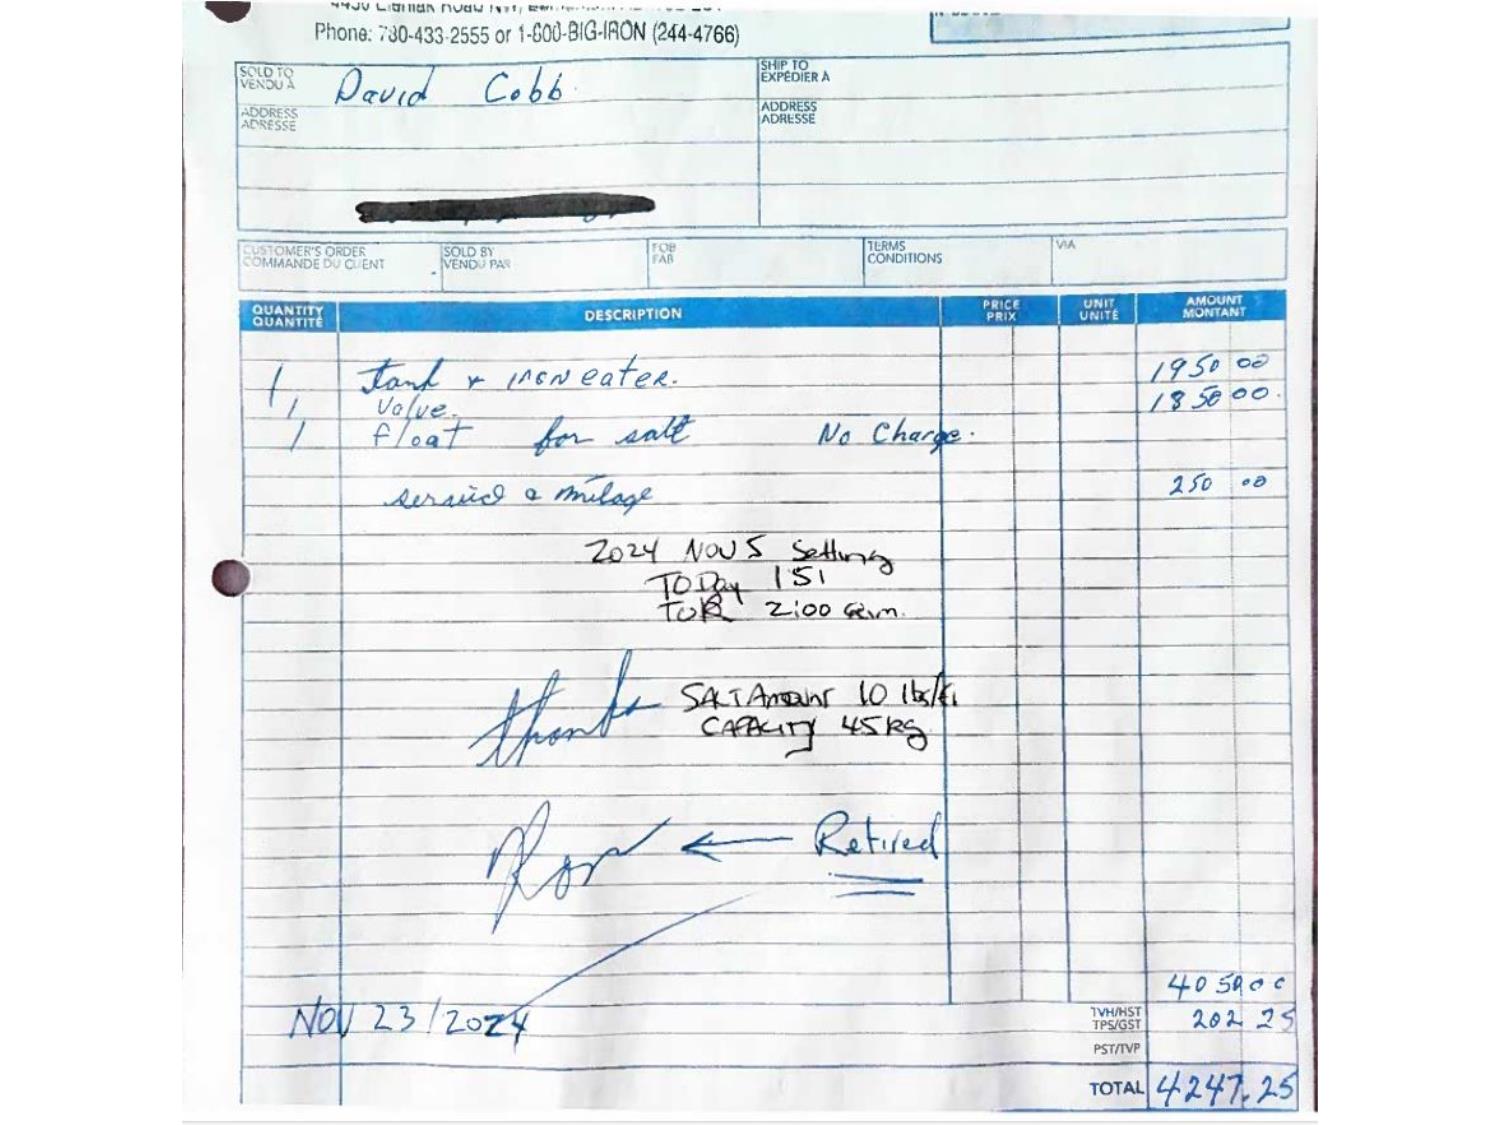 Phone: 780-433-2555 or 1-800-BIG-IRON (244-4766)
SOLD TO
VENDU À
David Cobb
ADDRESS
ADRESSE
SHIP TO
EXPÉDIER À
ADDRESS
ADRESSE
CUSTOMER'S ORDER
COMMANDE DU CLIENT
SOLD BY
VENDU PAR
FOB
FAB
TERMS
CONDITIONS
VIA
QUANTITY
QUANTITÉ
DESCRIPTION
PRICE
PRIX
UNIT
UNITÉ
AMOUNT
MONTANT
1 tank + iron eater. 1950 00
1 Valve. 1850 00
1 float for salt No Charge.
service & milage 250 00
2024 NOV 5 Setting
TODay 151
2:00
thanks
SALT Amount 10 lbs/
CAPACITY 45 kg
← Retired
4050 00
NOV 23/2024
TVH/HST
TPS/GST
202 25
PST/TVP
TOTAL 4247.25